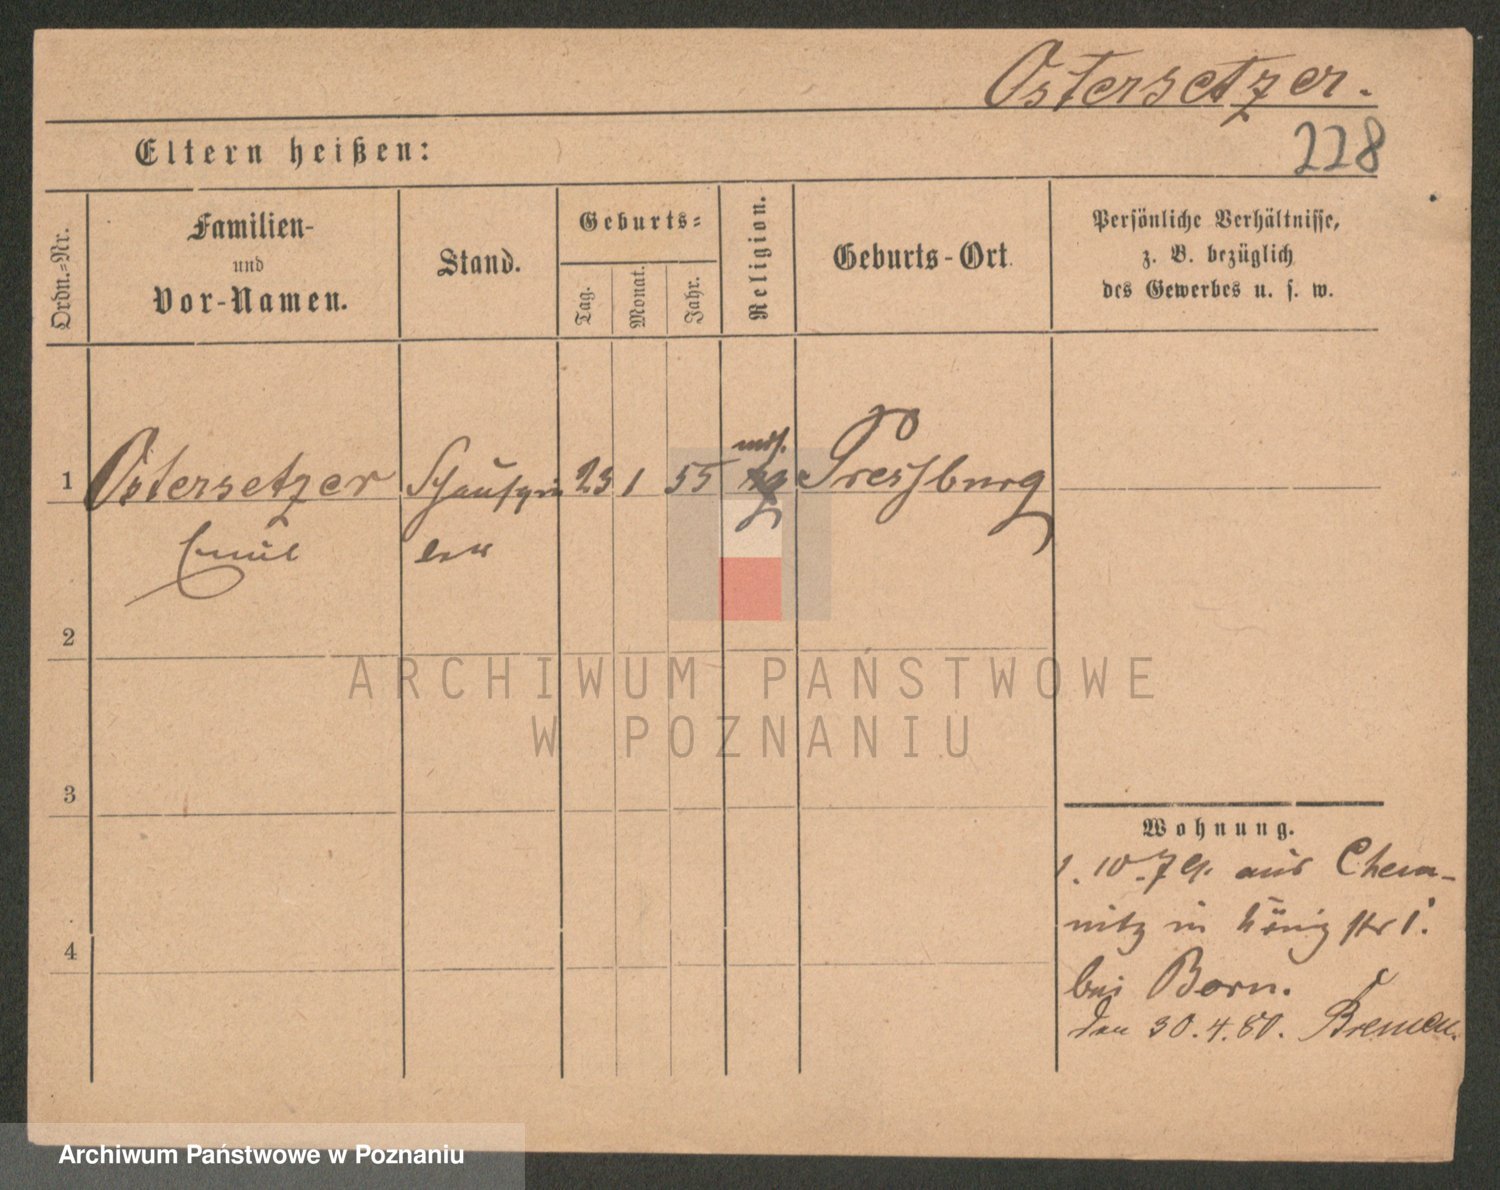 Ostersetzer.
228
Eltern heißen:
Ordn.-Nr.
Familien-
und
Vor-Namen.
Stand.
Geburts-
Tag.
Monat.
Jahr.
Religion.
Geburts-Ort.
Persönliche Verhältnisse,
z. B. bezüglich
des Gewerbes u. s. w.
1 Ostersetzer Schauspie 23 1 55 Pressburg
Emil ler
2
3
4
Wohnung.
1.10.79. aus Chem-
nitz in Königstr 1.
bei Born.
Den 30.4.80. Bremen.
ARCHIWUM PAŃSTWOWE
W POZNANIU
Archiwum Państwowe w Poznaniu